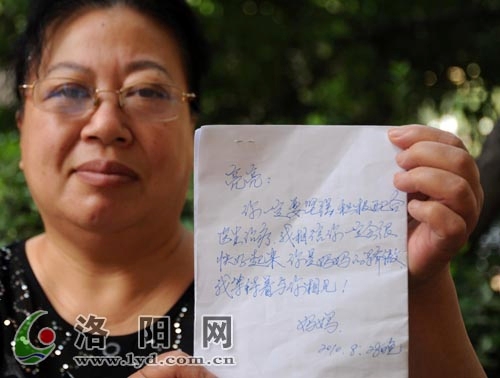 亮亮：
你一定要坚强积极配合
医生治病，我相信你一定会很
快好起来，你是妈妈的骄傲
我等待着与你相见！
妈妈
2010.8.28晚
洛阳网
www.lyd.com.cn